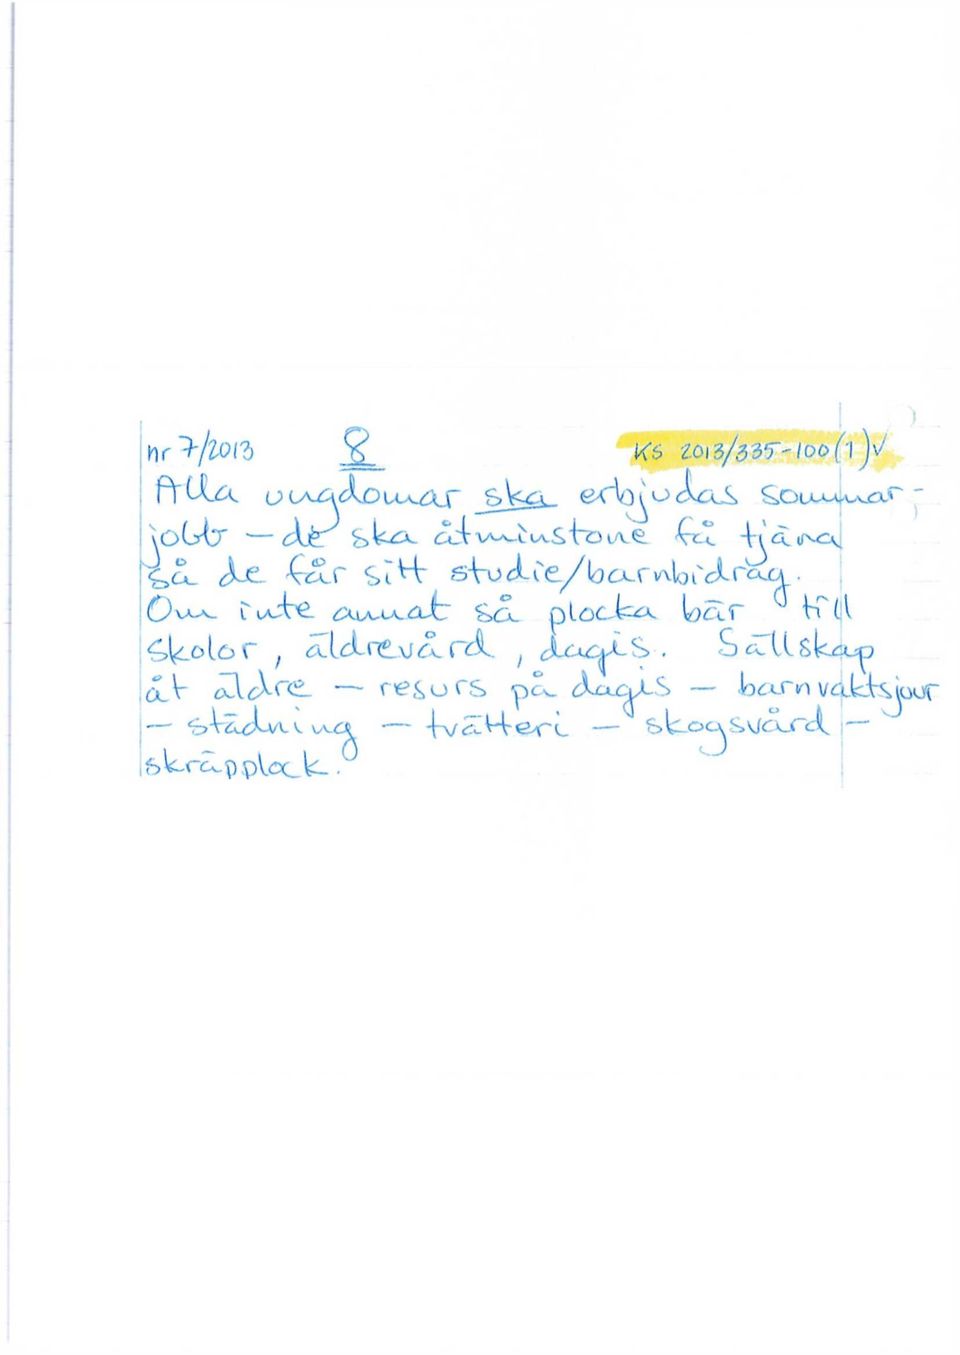 nr 7/2013 8 KS 2013/335-100(1)V
Alla ungdomar ska erbjudas sommar-
jobb - de ska åtminstone få tjäna
så de får sitt studie/barnbidrag.
Om inte annat så plocka bär till
skolor, äldrevård, dagis. Sällskap
åt äldre - resurs på dagis - barnvaktsjour
- städning - tvätteri - skogsvård -
skräpplock.